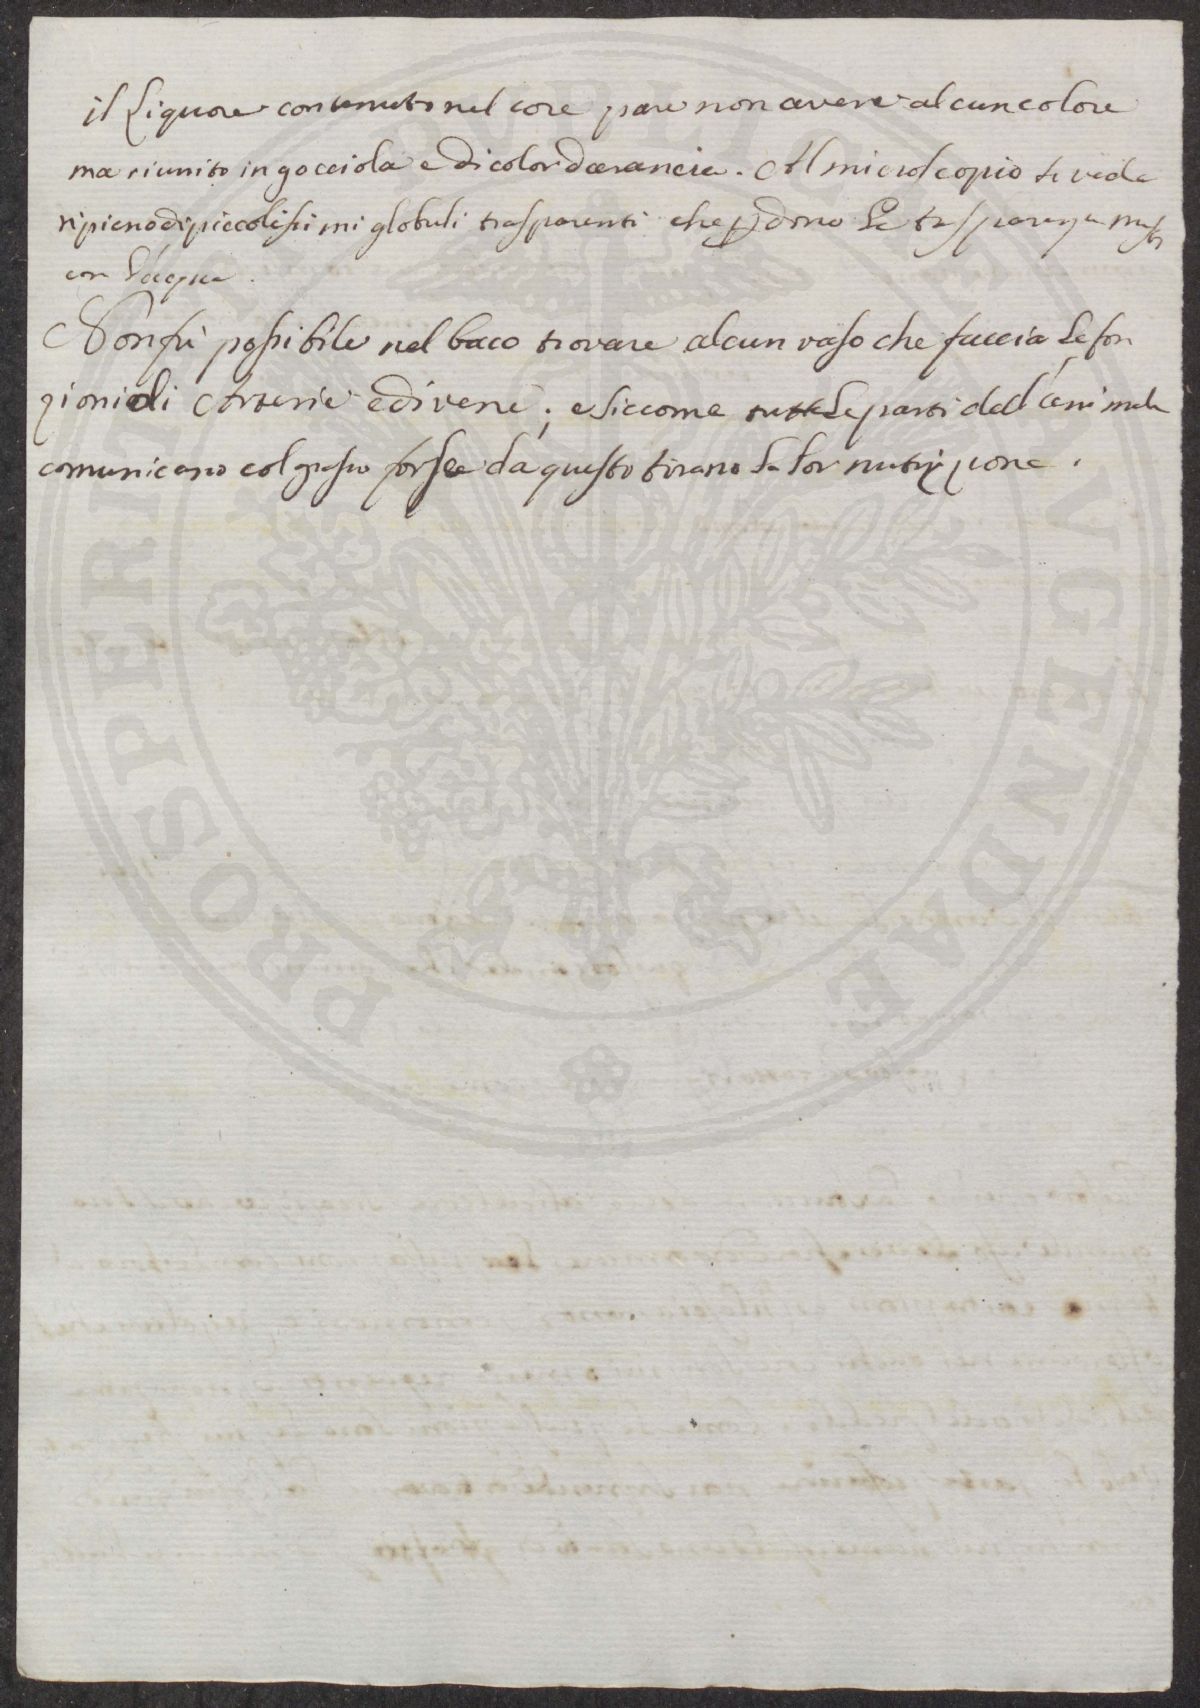 il Liquore contenuto nel core pare non avere alcun colore
ma riunito in gocciola e di color d'arancia. Al microscopio si vede
ripieno di piccolissimi globuli trasparenti che perdono la trasparenza misti
con l'acqua.
Non fù possibile nel baco trovare alcun vaso che faccia le fon
zioni di Arterie e di vene; e siccome tutte le parti dell'animale
comunicano col grasso forse da questo tirano la lor nutrizione.
PROSPERITATI PUBLICAE AUGENDAE